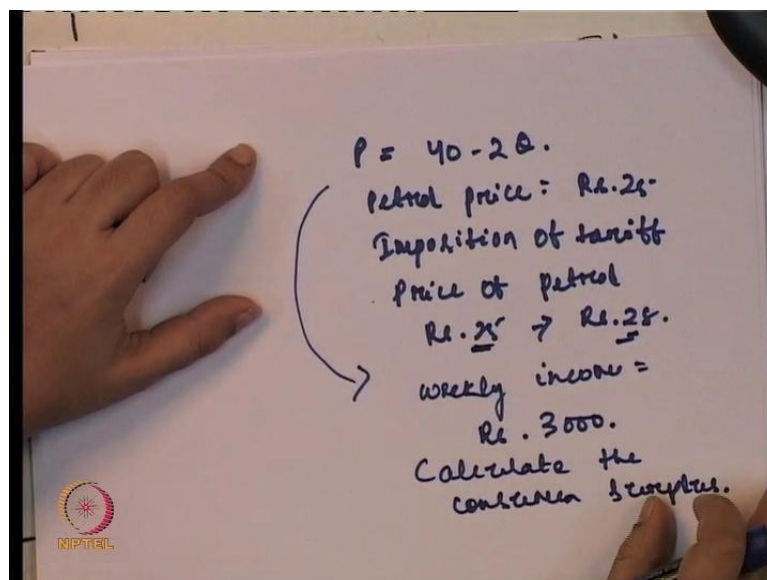 P = 40-2Q.
Petrol price: Rs.25
Imposition of tariff
Price of petrol
Rs.25 → Rs.28.
weekly income =
Rs. 3000.
Calculate the
consumer surplus.
NPTEL